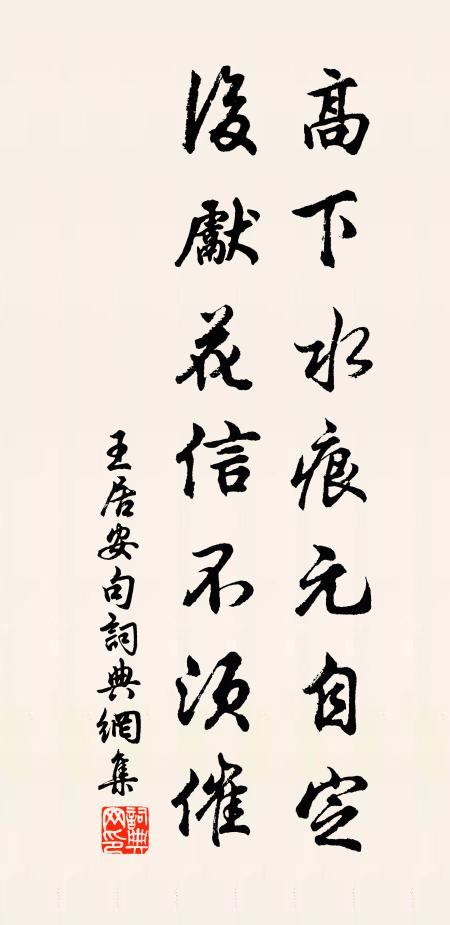 高下水痕元自定
後獻花信不須催
王居安句詞典網集
詞典
网印